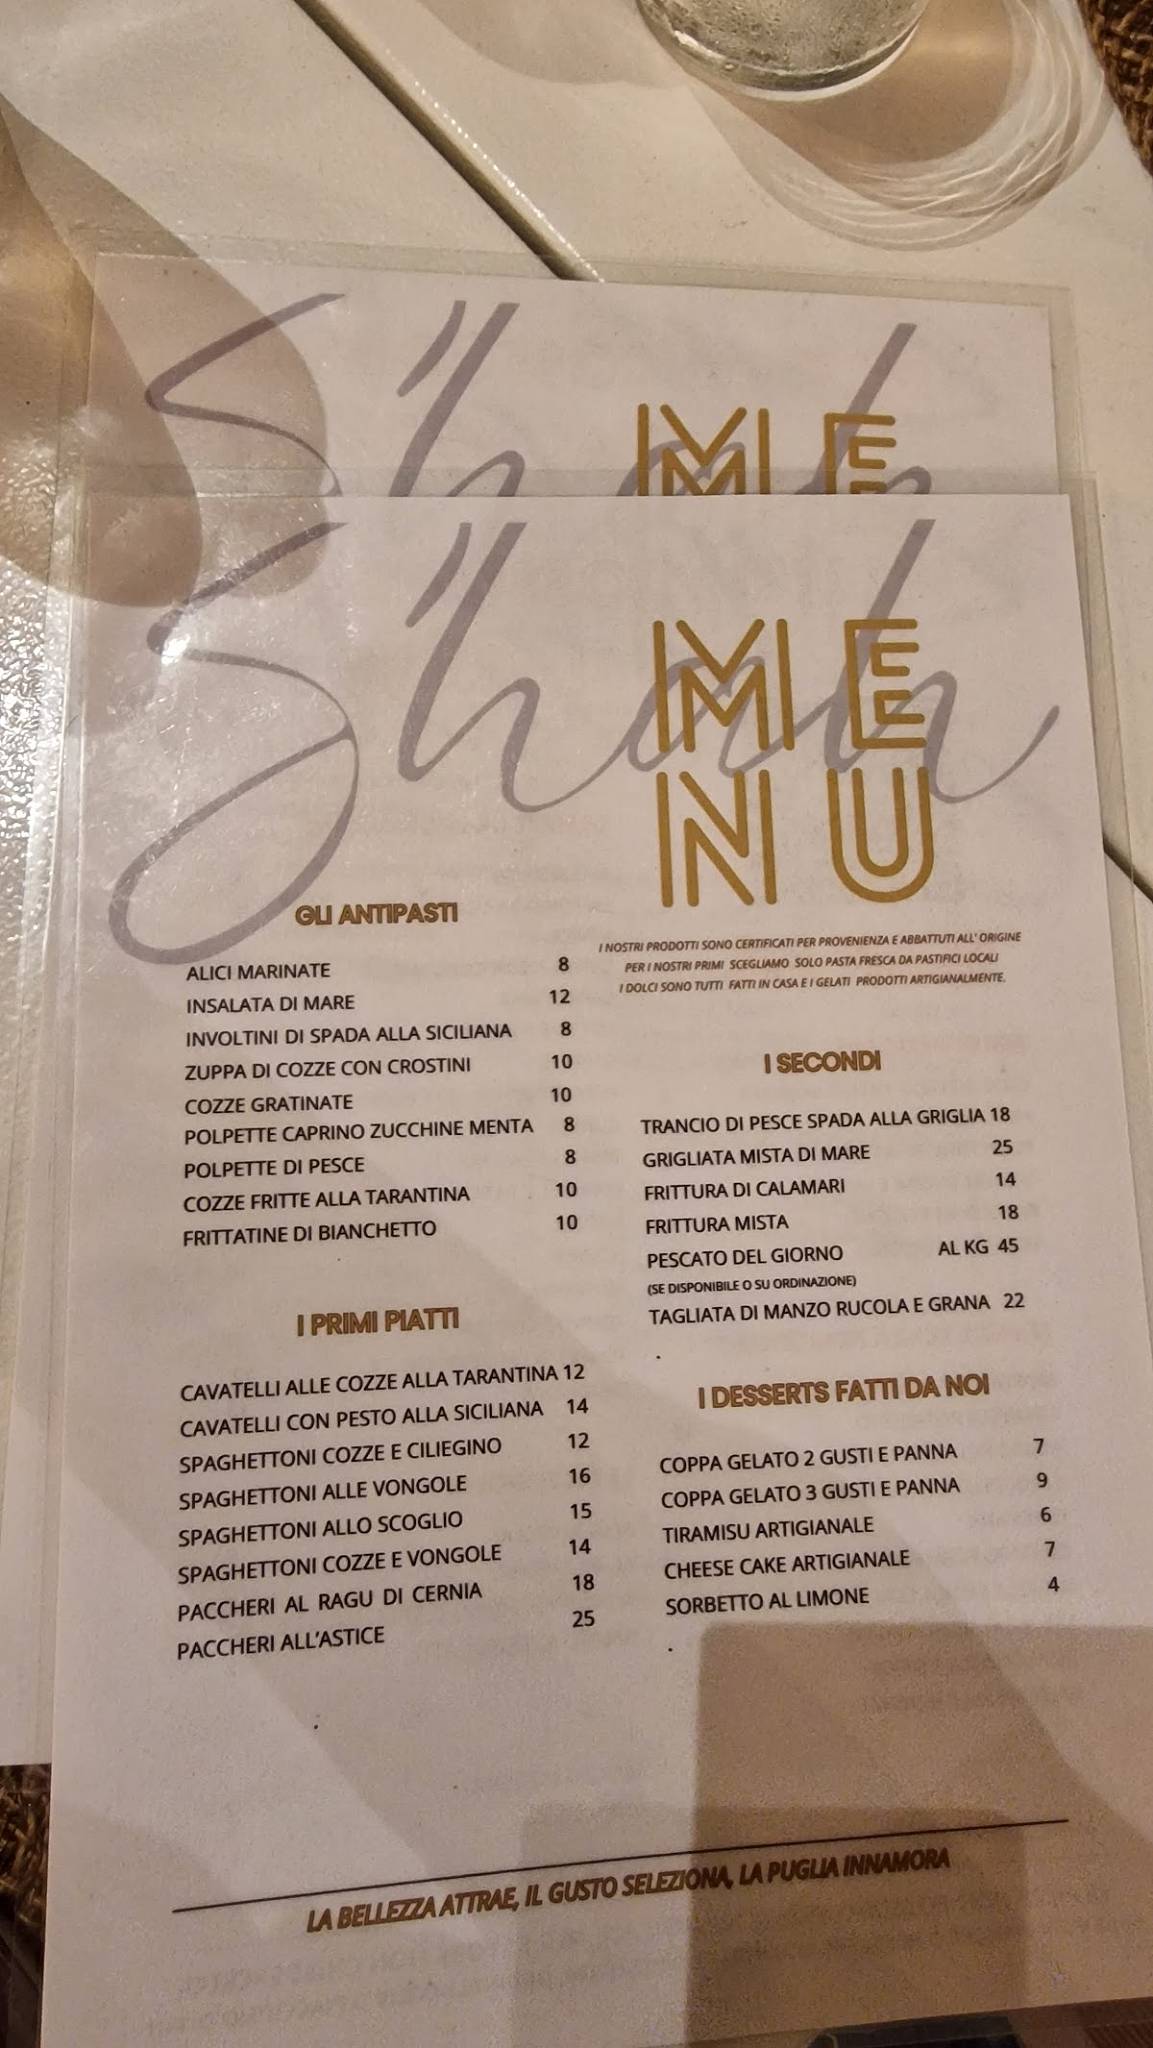 Shah
ME
Shah
ME
NU
GLI ANTIPASTI
ALICI MARINATE 8
INSALATA DI MARE 12
INVOLTINI DI SPADA ALLA SICILIANA 8
ZUPPA DI COZZE CON CROSTINI 10
COZZE GRATINATE 10
POLPETTE CAPRINO ZUCCHINE MENTA 8
POLPETTE DI PESCE 8
COZZE FRITTE ALLA TARANTINA 10
FRITTATINE DI BIANCHETTO 10
I PRIMI PIATTI
CAVATELLI ALLE COZZE ALLA TARANTINA 12
CAVATELLI CON PESTO ALLA SICILIANA 14
SPAGHETTONI COZZE E CILIEGINO 12
SPAGHETTONI ALLE VONGOLE 16
SPAGHETTONI ALLO SCOGLIO 15
SPAGHETTONI COZZE E VONGOLE 14
PACCHERI AL RAGU DI CERNIA 18
PACCHERI ALL'ASTICE 25
I NOSTRI PRODOTTI SONO CERTIFICATI PER PROVENIENZA E ABBATTUTI ALL' ORIGINE
PER I NOSTRI PRIMI SCEGLIAMO SOLO PASTA FRESCA DA PASTIFICI LOCALI
I DOLCI SONO TUTTI FATTI IN CASA E I GELATI PRODOTTI ARTIGIANALMENTE.
I SECONDI
TRANCIO DI PESCE SPADA ALLA GRIGLIA 18
GRIGLIATA MISTA DI MARE 25
FRITTURA DI CALAMARI 14
FRITTURA MISTA 18
PESCATO DEL GIORNO AL KG 45
(SE DISPONIBILE O SU ORDINAZIONE)
TAGLIATA DI MANZO RUCOLA E GRANA 22
.
I DESSERTS FATTI DA NOI
COPPA GELATO 2 GUSTI E PANNA 7
COPPA GELATO 3 GUSTI E PANNA 9
TIRAMISU ARTIGIANALE 6
CHEESE CAKE ARTIGIANALE 7
SORBETTO AL LIMONE 4
.
LA BELLEZZA ATTRAE, IL GUSTO SELEZIONA, LA PUGLIA INNAMORA